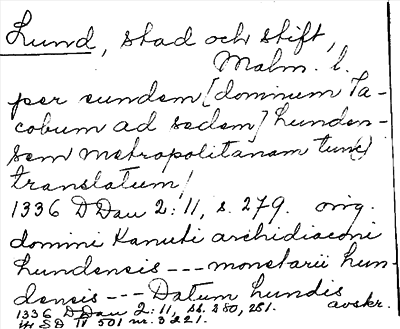 Lund, stad och stift,
Malm. l.
per eundem [dominum Ja-
cobum ad sedem] Lunden-
sem metropolitanam tunc
translatum/
1336 DDan 2:11, s. 279. orig.
domini Kanuti archidiaconi
Lundensis --- monetarii Lun-
densis --- Datum Lundis
1336 DDan 2:11, ss. 280, 281. avskr.
SD IV 501 nr. 3221.